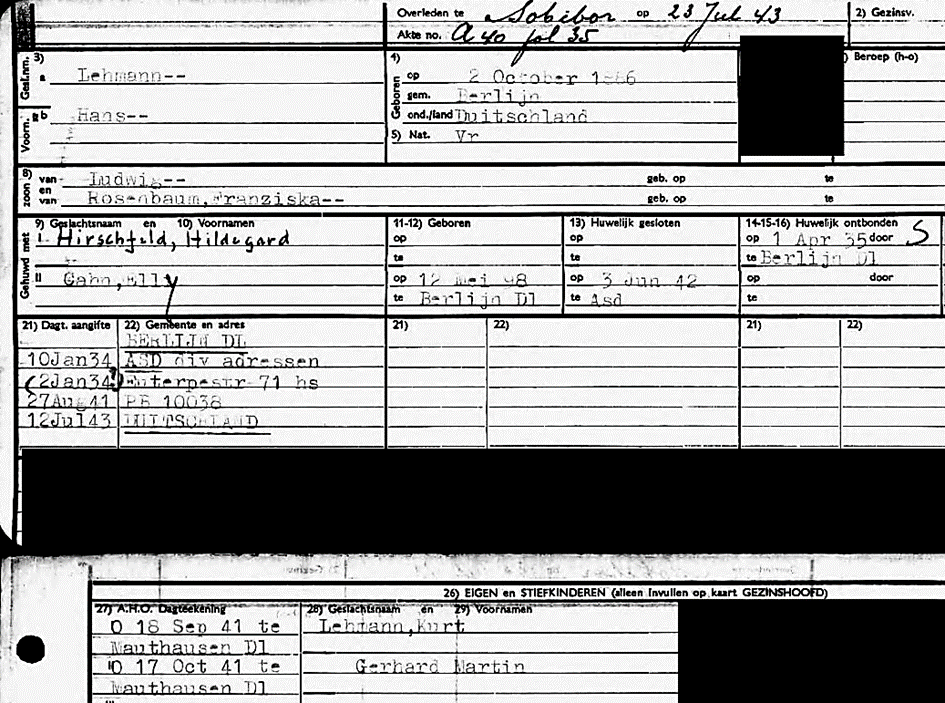 Overleden te Sobibor op 23 Jul 43 2) Gezinsv.
Akte no. A 40 fol 35
Gesl.nm. 3) a Lehmann--
Voorn. b Hans--
4) Geboren op 2 October 1886 Beroep (h-o)
gem. Berlijn
ond./land Duitschland
5) Nat. Vr
8) zoon van Ludwig-- geb. op te
en van Rosenbaum,Franziska-- geb. op te
9) Geslachtsnaam en 10) Voornamen 11-12) Geboren 13) Huwelijk gesloten 14-15-16) Huwelijk ontbonden
Gehuwd met I Hirschfeld, Hildegard op op op 1 Apr 35 door S
te te te Berlijn Dl
II Gahn,Elly op 12 Mei 98 op 3 Jun 42 op door
te Berlijn Dl te Asd te
21) Dagt. aangifte 22) Gemeente en adres 21) 22) 21) 22)
BERLIJN DL
10Jan34 ASD div adressen
(2Jan34?) Euterpestr 71 hs
27Aug41 PB 10038
12Jul43 DUITSCHLAND
26) EIGEN en STIEFKINDEREN (alleen invullen op kaart GEZINSHOOFD)
27) A.H.O. Dagteekening 28) Geslachtsnaam en 29) Voornamen
O 18 Sep 41 te Lehmann,Kurt
Mauthausen Dl
O 17 Oct 41 te Gerhard Martin
Mauthausen Dl